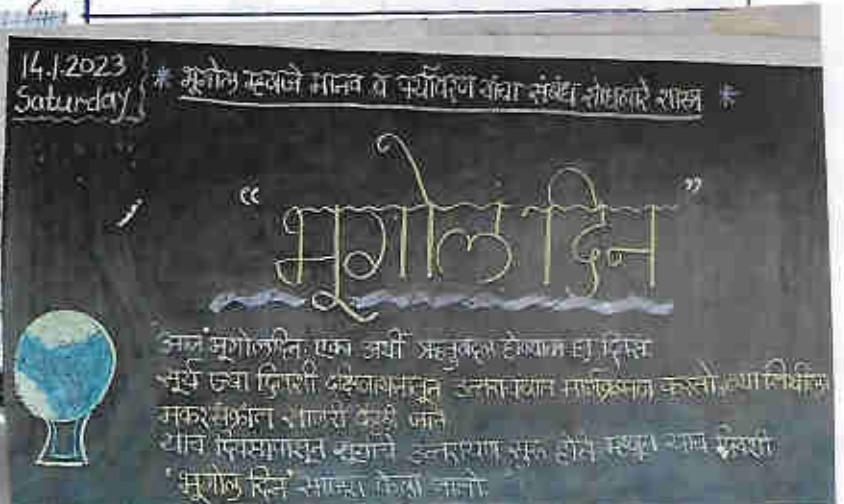 14.1.2023
Saturday
* भूगोल म्हणजे मानव व पर्यावरण यांचा संबंध शोधणारे शास्त्र *
“भूगोल दिन”
भूगोलदिन एका अर्थी ऋतुबदल होण्याचा हा दिवस
सूर्य ज्या दिवशी दक्षिणायनातून उत्तरायणात मार्गक्रमण करतो त्या तिथीला
मकरसंक्रांत साजरी केली जाते
याच दिवसापासून सूर्याचे उत्तरायण सुरू होते म्हणून याच दिवशी
'भूगोल दिन' साजरा केला जातो.